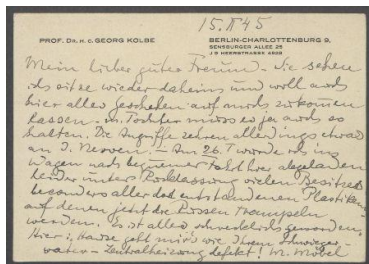 15. II 45
PROF. DR. H. C. GEORG KOLBE
BERLIN-CHARLOTTENBURG 9,
SENSBURGER ALLEE 25
J 9 HEERSTRASSE
Mein lieber guter Freund. Sie sehen
ich sitze wieder daheim und will auch
hier alles geschehen auf mich zukommen
lassen. m. Tochter muss es ja auch so
halten. Die Angriffe zehren allerdings etwas
an d. Nerven. – Am 26. I wurde ich im
Wagen nach Fahrt hier abgeladen
leider unter vielen Besitzes
besonders aller dort entstandenen Plastiken
auf denen jetzt die Russen trampeln
werden. Es ist alles schrecklich geworden.
Hier i. Hause geht mir's wie Ihrem Schwieger-
vater – Zentralheizung defekt! M. Möbel